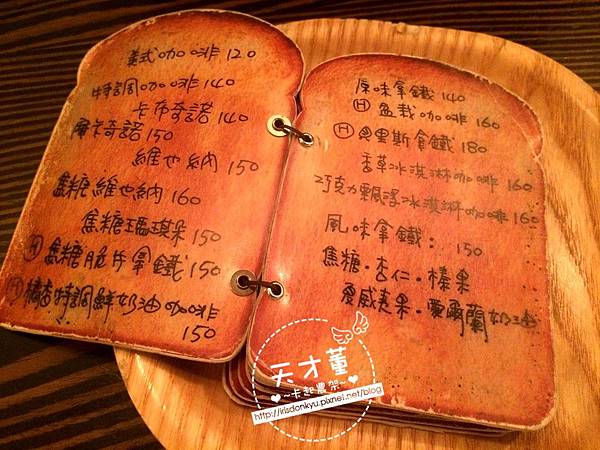 美式咖啡 120
特調咖啡 140
卡布奇諾 140
摩卡奇諾 150
維也納 150
焦糖維也納 160
焦糖瑪琪朵 150
Ⓗ 焦糖脆片拿鐵 150
Ⓗ 橘香特調鮮奶油咖啡
150
原味拿鐵 140
Ⓗ 盆栽咖啡 160
Ⓗ 貝里斯拿鐵 180
香草冰淇淋咖啡 160
巧克力飄浮冰淇淋咖啡 160
風味拿鐵: 150
焦糖.杏仁.榛果
夏威夷果.愛爾蘭奶油
天才董
~卡起農架~
http://irisdonkyu.pixnet.net/blog